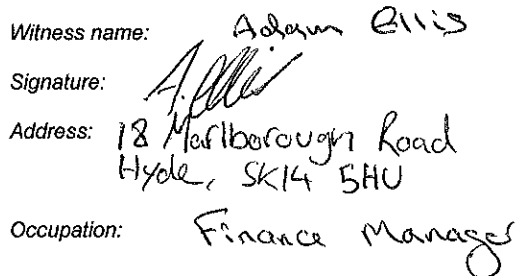 Witness name: Adam Ellis
Signature: A. Ellis
Address: 18 Marlborough Road
Hyde, SK14 5HU
Occupation: Finance Manager